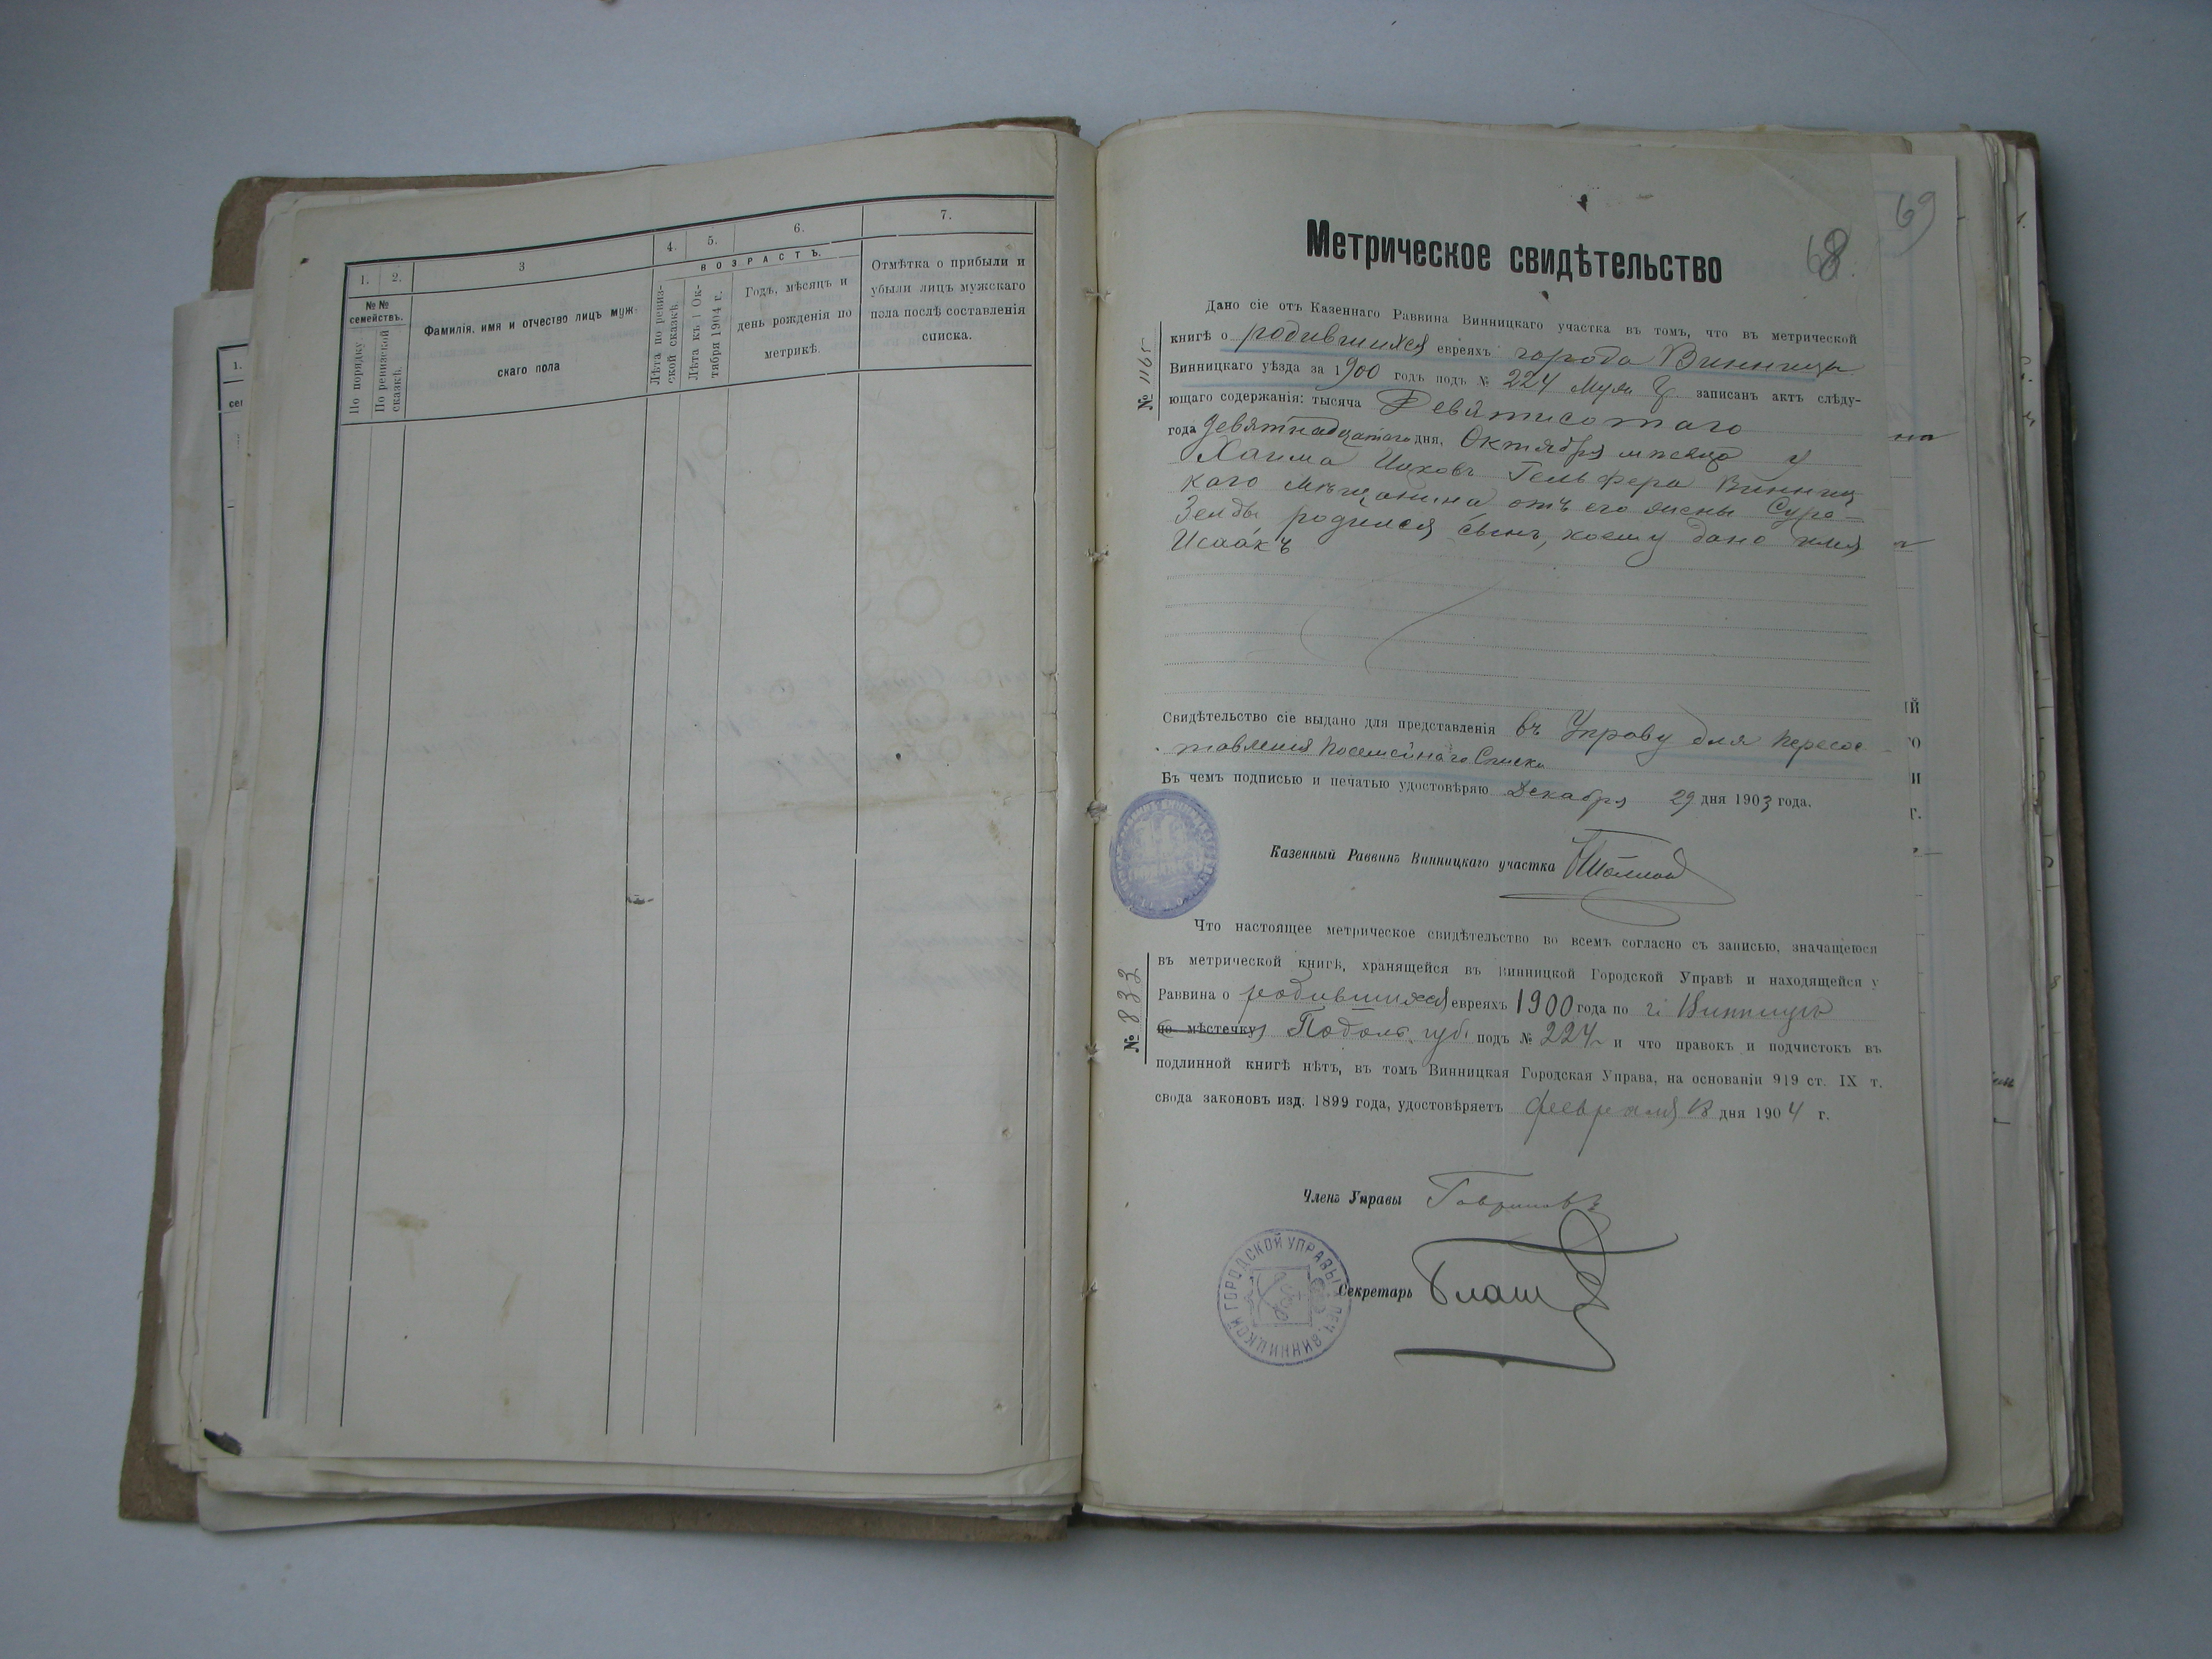 1.
2.
3
4.
5.
6.
7.
№№ семействъ.
По порядку
По ревизской сказкѣ.
Фамилія, имя и отчество лицъ муж-
скаго пола
ВОЗРАСТЪ.
Лѣта по ревиз-
ской сказкѣ.
Лѣта къ 1 Ок-
тября 1904 г.
Годъ, мѣсяцъ и
день рожденія по
метрикѣ.
Отмѣтка о прибыли и
убыли лицъ мужскаго
пола послѣ составленія
списка.
69
68.
Метрическое свидѣтельство
№ 1165
Дано сіе отъ Казеннаго Раввина Винницкаго участка въ томъ, что въ метрической
книгѣ о родившихся евреяхъ города Винницы
Винницкаго уѣзда за 1900 годъ подъ № 224 муж записанъ актъ слѣду-
ющаго содержанія: тысяча Девятисотаго
года девятнадцатаго дня, Октября мѣсяца у
Хаима Гельфера Винниц
каго мѣщанина отъ его жены Сура-
Зельды родился сынъ, коему дано имя
Исаакъ
Свидѣтельство сіе выдано для представленія въ Управу для пересос
тавленія Посемейнаго Списка
Въ чемъ подписью и печатью удостовѣряю Декабря 29 дня 1903 года.
Казенный Раввинъ Винницкаго участка
№ 833
Что настоящее метрическое свидѣтельство во всемъ согласно съ записью, значащеюся
въ метрической книгѣ, хранящейся въ Винницкой Городской Управѣ и находящейся у
Раввина о родившихся евреяхъ 1900 года по г. Винницѣ
(по мѣстечку) Подоль. губ. подъ № 224 и что правокъ и подчистокъ въ
подлинной книгѣ нѣтъ, въ томъ Винницкая Городская Управа, на основаніи 919 ст. IX т.
свода законовъ изд. 1899 года, удостовѣряетъ февраля 18 дня 1904 г.
Членъ Управы
ПЕЧ. ВИННИЦКОЙ ГОРОДСКОЙ УПРАВЫ
Секретарь